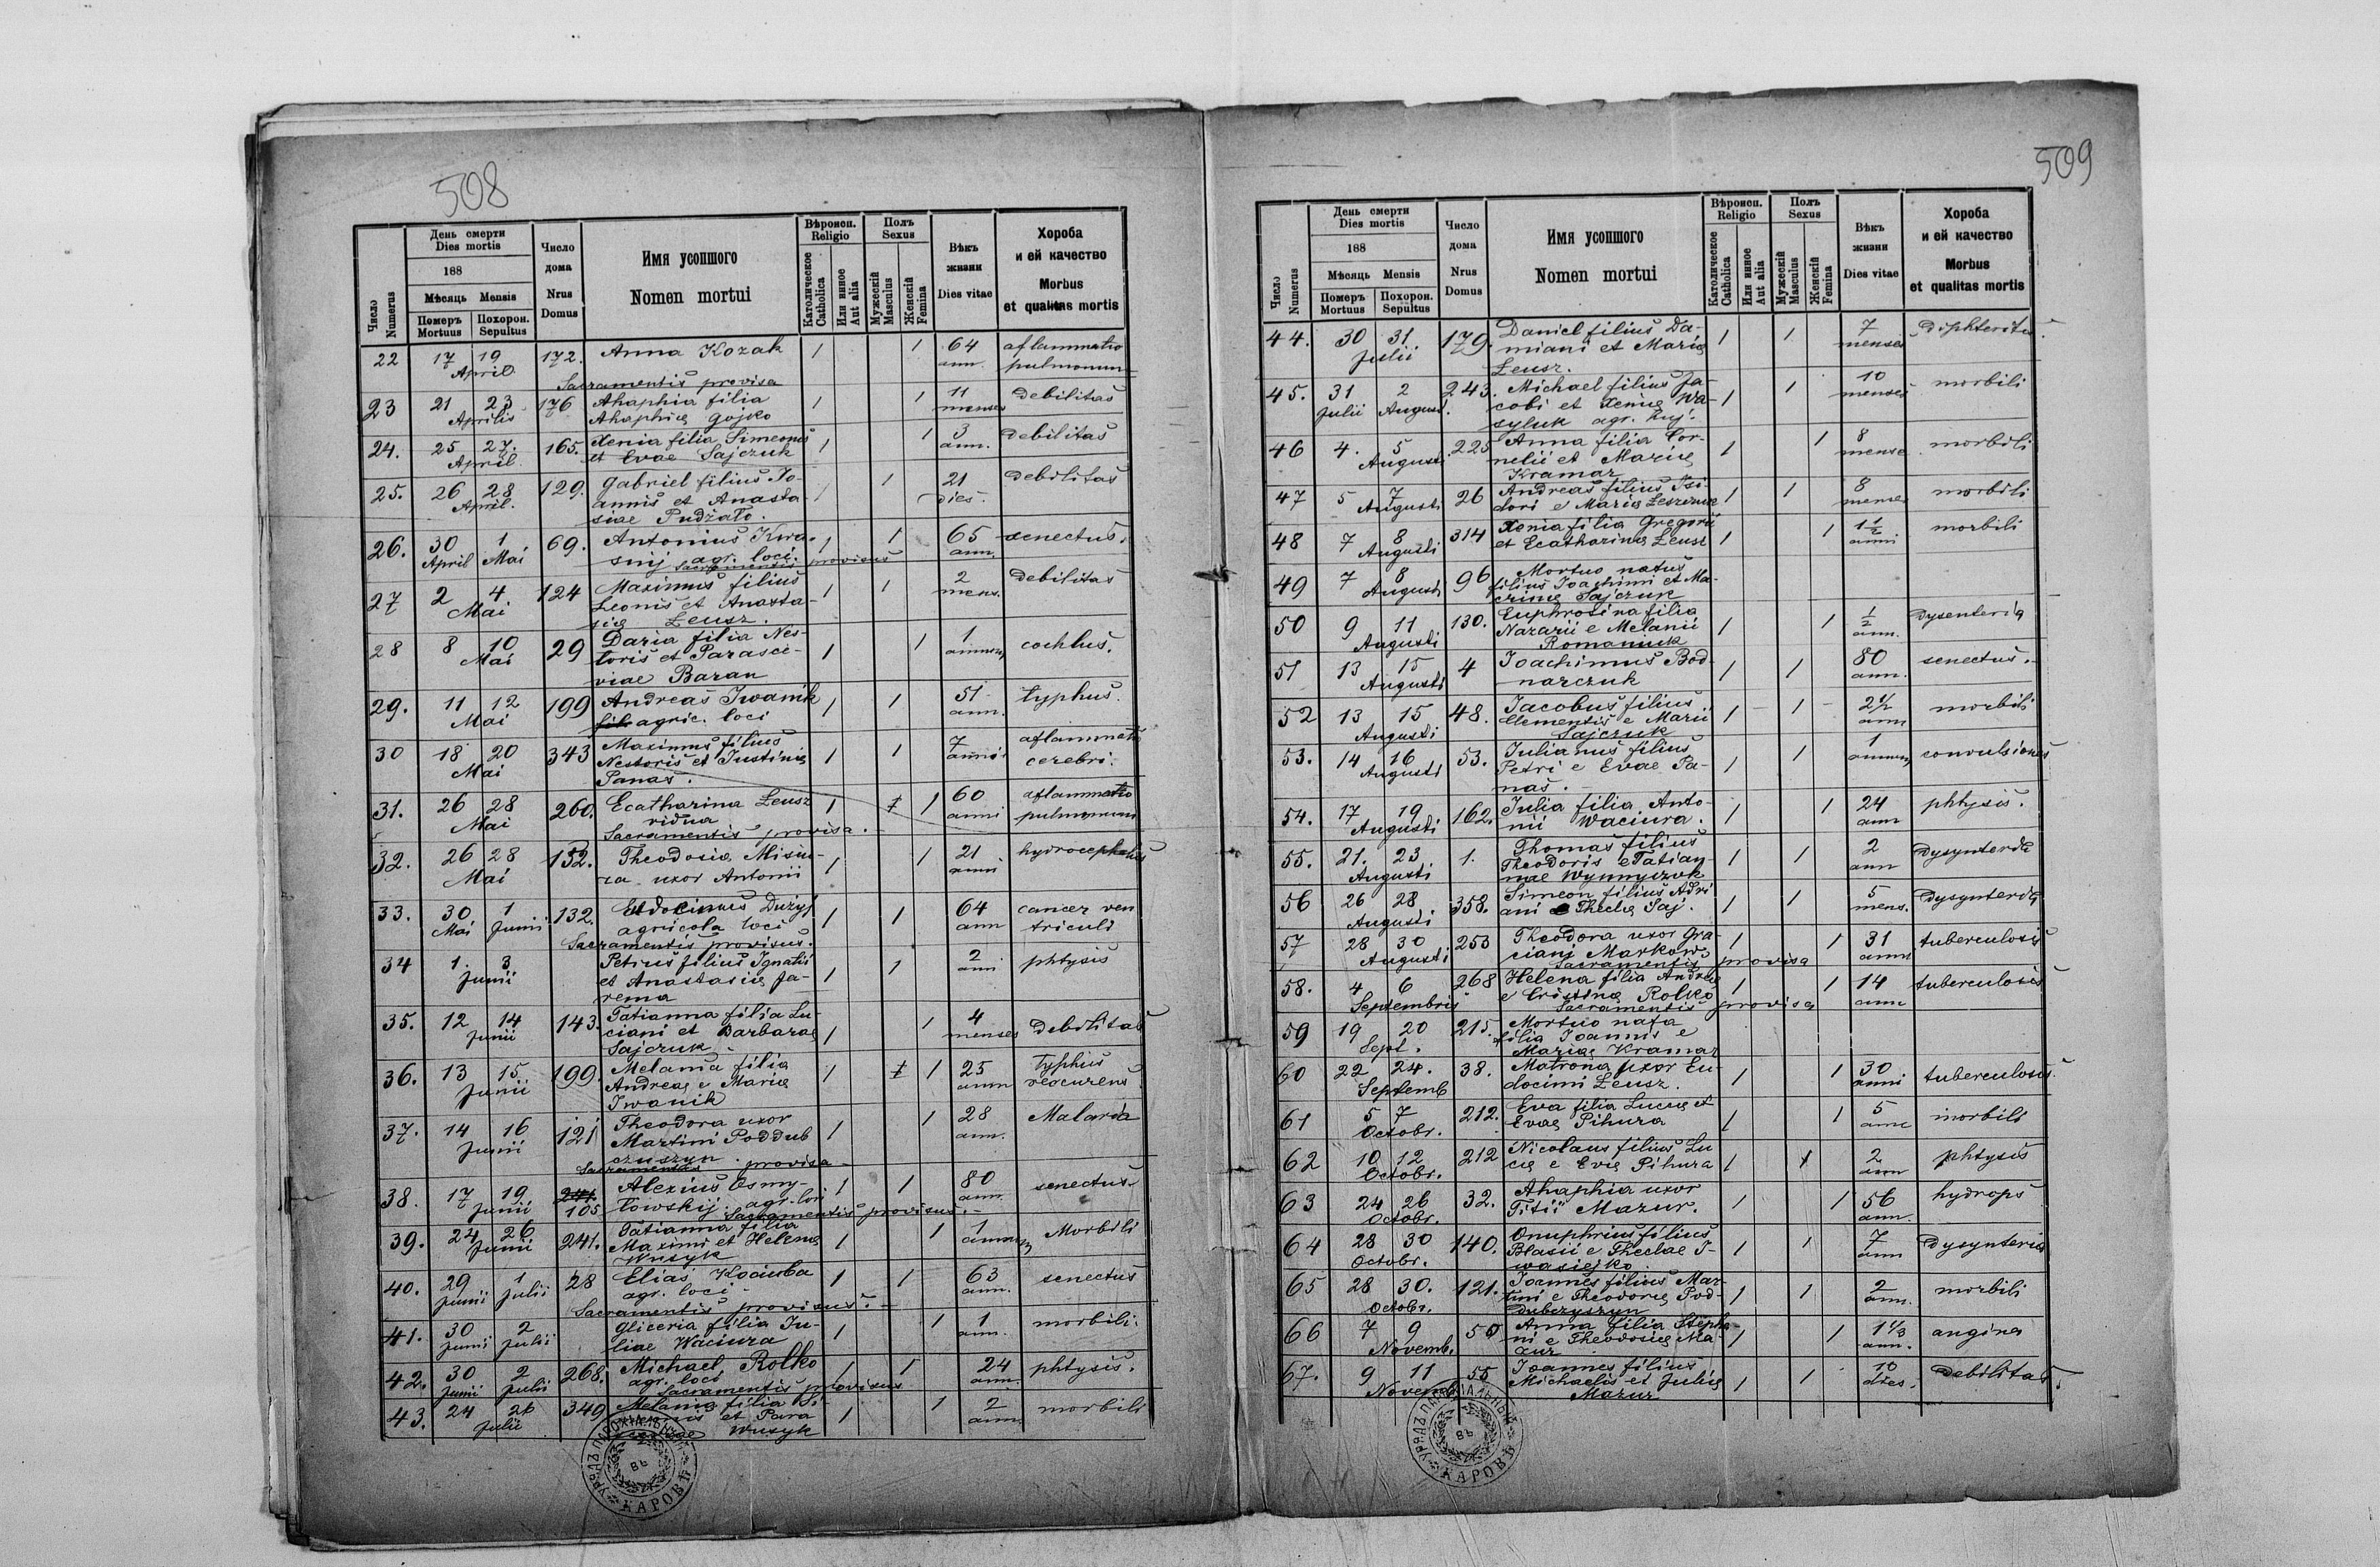 508
Число Numerus
День смерти
Dies mortis
188
Мѣсяць Mensis
Померъ Mortuus
Похорон. Sepultus
Число дома
Nrus Domus
Имя усопшого
Nomen mortui
Вѣроисп. Religio
Католическое Catholica
Или инное Aut alia
Полъ Sexus
Мужескій Masculus
Женскій Femina
Вѣкъ жизни
Dies vitae
Хороба и ей качество
Morbus et qualitas mortis
22 17 19 April 172. Anna Kozak 1 1 64 ann. aflammatio pulmonum
Sacramentis provisa
23 21 23 Aprilis 176 Ahaphia filia 1 1 11 menses debilitas
Ahaphię Gojko
24. 25 27. April. 165. Xenia filia Simeonis 1 1 3 ann. debilitas
et Evae Sajczuk
25. 26 28 April. 129. Gabriel filius Jo- 1 1 21 dies. debilitas
annis et Anasta-
siae Pudžało.
26. 30 April 1 Mai 69. Antonius Kwa- 1 1 65 ann. senectus.
snij agr. loci.
Sacramentis provisus
27 2 4 Mai 124 Maximus filius 1 1 2 mens. debilitas
Leonis et Anasta-
się Leusz.
28 8 10 Mai 29 Daria filia Nes- 1 1 1 annum cochlus.
toris et Parasce-
viae Baran
29. 11 12 Mai 199 Andreas Iwanik 1 1 51 ann. typhus.
fil agric. loci
30 18 20 Mai 343 Maximus filius 1 1 7 anni aflammati cerebri.
Nestoris et Justinię
Panas.
31. 26 28 Mai 260. Ecatharina Leusz 1 1 60 anni aflammatio pulmonum
vidua
Sacramentis provisa.
32. 26 28 Mai 132. Theodosia Misiu- 1 1 21 anni hydrocephalus
ra uxor Antonii
33. 30 Mai 1 Junii 132. Eudocimus Dużyj 1 1 64 ann cancer ven triculi
agricola loci
Sacramentis provisus.
34 1. 3 Junii Petrus filius Ignatii 1 1 2 anni phtysis
et Anastasię Ja-
rema
35. 12 14 Junii 143. Tatianna filia Lu- 1 1 4 menses debilitas
ciani et Barbarae
Sajczuk
36. 13 15 Junii 199. Melania filia 1 1 25 annn typhus recurens
Andreę e Marię
Iwanik
37. 14 16 Junii 121 Theodora uxor 1 1 28 ann. Malaria
Martini Poddub
czyszyn.
Sacramentis provisa
38. 17 19 Junii 241. 105 Alexius Osmy- 1 1 80 ann. senectus
łowskij. agr. loci
Sacramentis provisus.
39. 24 26 Junii 241. Tatianna filia 1 1 1 annum Morbili
Maximi et Helenę
Wusyk
40. 29 Junii 1 Julii 28 Elias Kociuba 1 1 63 ann. senectus
agr. loci
Sacramentis provisus.
41. 30 Junii 2 Julii Gliceria filia Ju- 1 1 1 ann. morbili.
liae Waciura
42. 30 Junii 2 Julii 268. Michael Rolko 1 1 24 ann. phtysis.
agr. loci
Sacramentis provisus
43. 24 26 Julii 349 Melania filia 1 1 2 ann. morbili
et Para
Wusyk
КАРОВѢ
509
Число Numerus
День смерти
Dies mortis
188
Мѣсяць Mensis
Померъ Mortuus
Похорон. Sepultus
Число дома
Nrus Domus
Имя усопшого
Nomen mortui
Вѣроисп. Religio
Католическое Catholica
Или инное Aut alia
Полъ Sexus
Мужескій Masculus
Женскій Femina
Вѣкъ жизни
Dies vitae
Хороба и ей качество
Morbus et qualitas mortis
44. 30 31. Julii 179. Daniel filius Da- 1 1 7 menses Diphteritis
miani et Marię
Leusz.
45. 31 Julii 2 August. 243. Michael filius Ja- 1 1 10 menses morbili
cobi et Xenię Wa-
syluk agr.
46 4. 5 Augusti 225 Anna filia Cor- 1 1 8 mense morbili
nelii et Marię
Kramar
47 5 7 Augusti 26 Andreas filius Isi- 1 1 8 menses morbili
dori e Marię
48 7 8 Augusti 314 Xenia filia Gregorii 1 1 1 1/2 anni morbili
et Ecatharinę Leusz
49 7 8 Augusti 96 Mortuo natus
filius Joachimi et Ma-
crinę Sajczuk
50 9 11 Augusti 130. Euphrosina filia 1 1 1/2 ann. Dysenteria
Nazarii e Melanii
Romaniuk
51 13 15 Augusti 4 Joachimus Bod- 1 1 80 ann. senectus.
narczuk
52 13 15 Augusti 48. Jacobus filius 1 1 2 1/2 ann morbili
Clementis e Marii
Sajczuk
53. 14 16 Augusti 53. Julianus filius 1 1 1 annum convulsiones
Petri e Evae Pa-
nas.
54. 17 19 Augusti 162. Julia filia Anto- 1 1 24 ann phtysis.
nii Waciura.
55. 21. 23. Augusti 1. Thomas filius 1 1 2 ann Dysynteria
Theodoris e Tatian-
nae Wynnyczok
56 26 28 Augusti 358. Simeon filius Adri 1 1 5 mens. Dysynteria
ani e Theclę Saj.
57 28 30 Augusti 253 Theodora uxor Gra- 1 1 31 anni tuberculosis
ciani Markow
Sacramentis provisa
58. 4 6 Septembris 268 Helena filia Andreę 1 1 14 ann tuberculosis
e Cristinę Rolko
Sacramentis provisa
59 19 20 Sept. 215. Mortuo nata
filia Joannis e
Marię Kramar
60 22 24. Septemb 38. Matrona uxor Eu- 1 1 30 anni tuberculosis.
docimi Leusz.
61 5 7 Octobr. 212. Eva filia Lucę et 1 1 5 anni morbili
Evae Pihura
62 10 12 Octobr. 212 Nicolaus filius Lu 1 1 2 ann phtysis
cę e Evę Pihura
63 24 26 Octobr. 32. Ahaphia uxor 1 1 56 ann. hydrops
Titii Mazur.
64 28 30 Octobr. 140. Onuphrius filius 1 1 7 ann Dysynteria
Blasii e Theclae I-
wasiejko.
65 28 30. Octobr. 121. Joannes filius Mar- 1 1 2 ann. morbili
tini e Theodorę Pod-
dubczyszyn
66 7 9 Novemb. 50 Anna filia Stepha- 1 1 1 1/3 ann. angina
ni e Theodosię Ma-
zur
67. 9 11 Novemb 55 Joannes filius 1 1 10 dies. Debilitas.
Michaelis et Julię
Mazur
КАРОВѢ